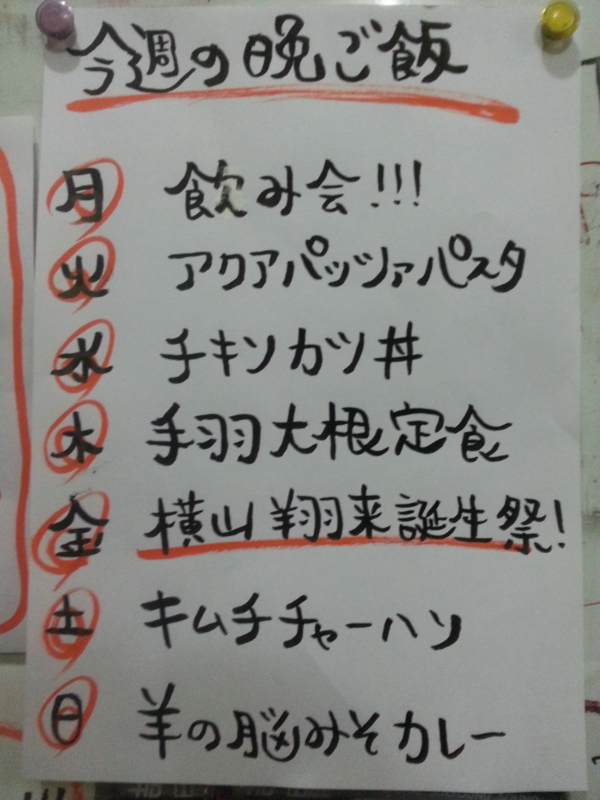 今週の晩ご飯
月 飲み会!!!
火 アクアパッツァパスタ
水 チキンカツ丼
木 手羽大根定食
金 横山翔来誕生祭!
土 キムチチャーハン
日 羊の脳みそカレー